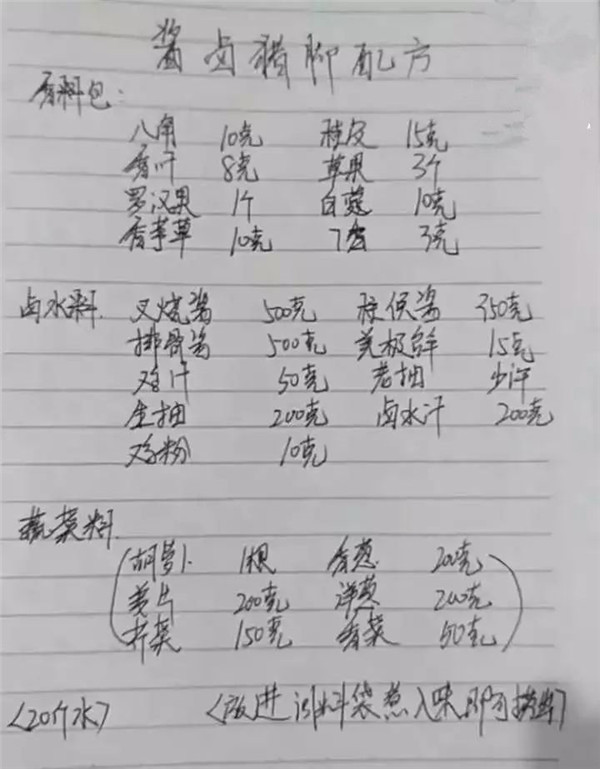 酱卤猪脚配方
香料包:
八角 10克 桂皮 15克
香叶 8克 草果 3个
罗汉果 1个 白蔻 10克
香茅草 10克 丁香 3克
卤水料. 叉烧酱 500克 柱侯酱 350克
排骨酱 500克 美极鲜 15克
鸡汁 50克 老抽 少许
生抽 200克 卤水汁 200克
鸡粉 10克
蔬菜料.
(胡萝卜 1根 香葱 200克
姜片 200克 洋葱 200克
芹菜 150克 香菜 50克)
<20斤水> <放进 料袋煮入味即可捞出>